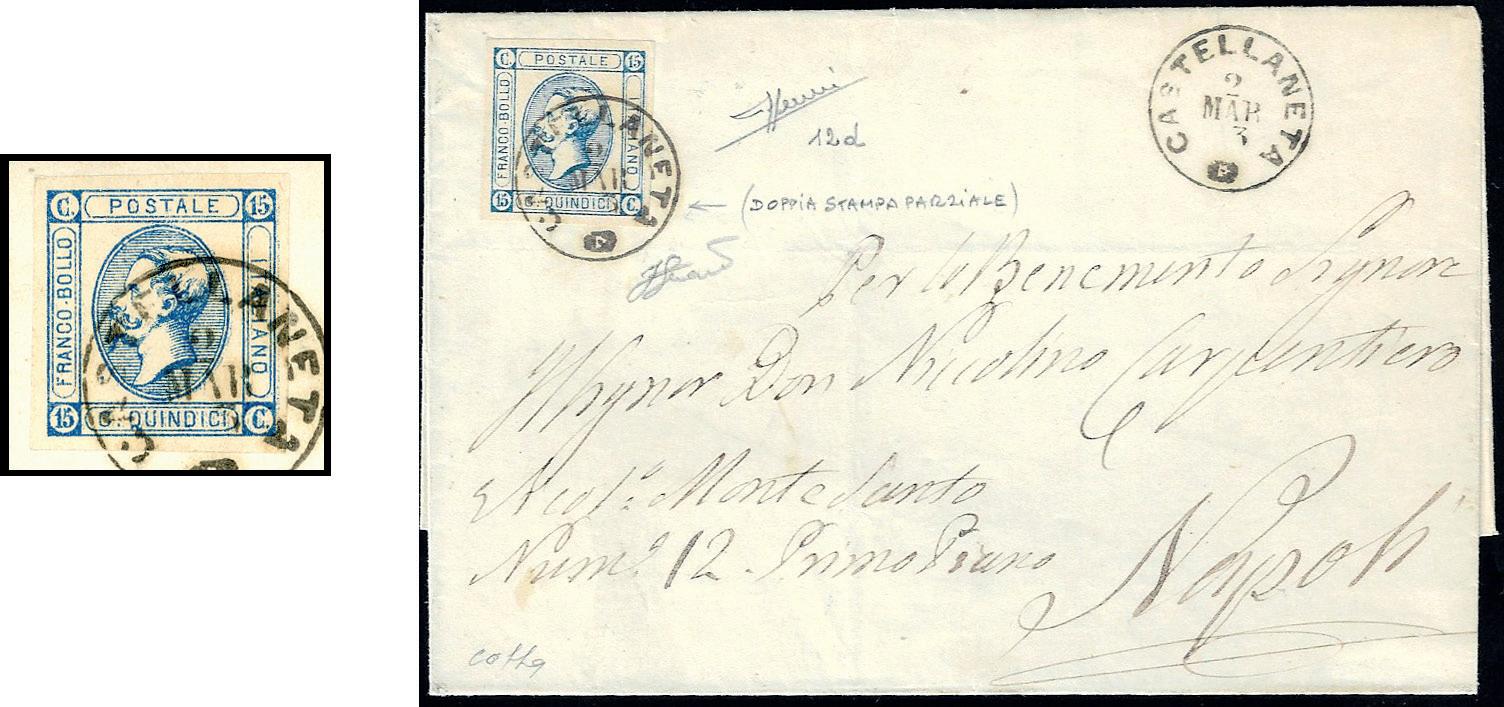 C. POSTALE 15
FRANCO-BOLLO
ITALIANO
15 C. QUINDICI C.
C. POSTALE 15
FRANCO-BOLLO
ITALIANO
15 C. QUINDICI C.
CASTELLANETA
2
MAR
CASTELLANETA
2
MAR
3
12d
(DOPPIA STAMPA PARZIALE)
Per lo Benemerito Signore
Signor Don Nicolino Carpentiero
Montesanto
Num.º 12. Primo Piano
Napoli